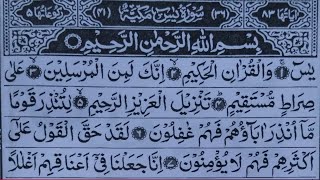 اٰیَاتُهَا ٨٣ (٣٦) سُوْرَةُ يٰسٓ مَكِّيَّةٌ (٤١) رُكُوْعَاتُهَا ٥
بِسْمِ اللّٰهِ الرَّحْمٰنِ الرَّحِيْمِ
يٰسٓ ۝١ وَالْقُرْاٰنِ الْحَكِيْمِ ۝٢ اِنَّكَ لَمِنَ الْمُرْسَلِيْنَ ۝٣ عَلٰى
صِرَاطٍ مُّسْتَقِيْمٍ ۝٤ تَنْزِيْلَ الْعَزِيْزِ الرَّحِيْمِ ۝٥ لِتُنْذِرَ قَوْمًا
مَّاۤ اُنْذِرَ اٰبَآؤُهُمْ فَهُمْ غٰفِلُوْنَ ۝٦ لَقَدْ حَقَّ الْقَوْلُ عَلٰۤى
اَكْثَرِهِمْ فَهُمْ لَا يُؤْمِنُوْنَ ۝٧ اِنَّا جَعَلْنَا فِيْۤ اَعْنَاقِهِمْ اَغْلٰلًا